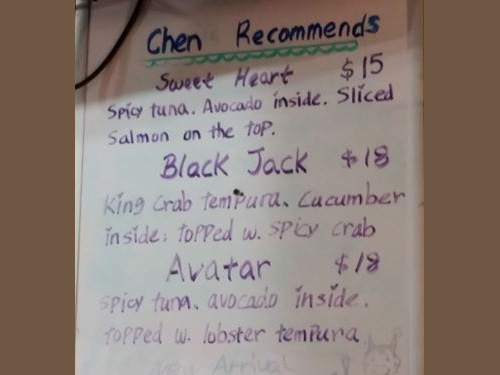 Chen Recommends
Sweet Heart $15
Spicy tuna. Avocado inside. Sliced
Salmon on the top.
Black Jack $18
King Crab tempura. Cucumber
inside; topped w. spicy crab
Avatar $18
spicy tuna. avocado inside.
topped w. lobster tempura
New Arrival